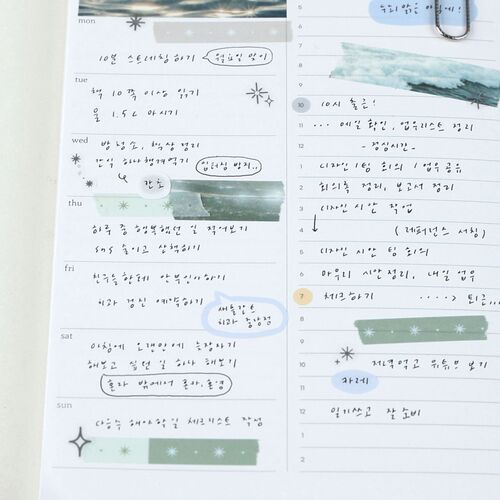 mon
10분 스트레칭하기 월요일 맞이
tue
책 10쪽 이상 읽기
물 1.5L 마시기
wed
방 청소, 책상 정리
간식 하나 챙겨먹기 입터짐 방지..
간초
thu
하루 중 행복했던 일 적어보기
sns 줄이고 산책하기
fri
친구들한테 안부인사하기
치과 검진 예약하기
치과
sat
아침에 오랜만에 늦잠자기
해보고 싶던 일 하나 해보기
혼자 밖에서
sun
다음주 해야할 일 체크리스트 작성
5
6
7
8
9
10 10시 출근!
11 ... 메일 확인, 업무리스트 정리
12 - 점심시간 -
1 디자인 1팀 회의 / 업무공유
2 회의록 정리, 보고서 정리
3 디자인 시안 작업
4 (레퍼런스 서칭)
5 디자인 시안 팀 회의
6 마무리 시안정리, 내일 업무
7 체크하기 ....> 퇴근...
8
9
10 저녁먹고 유튜브 보기
11
12 일기쓰고 잘 준비
1
2